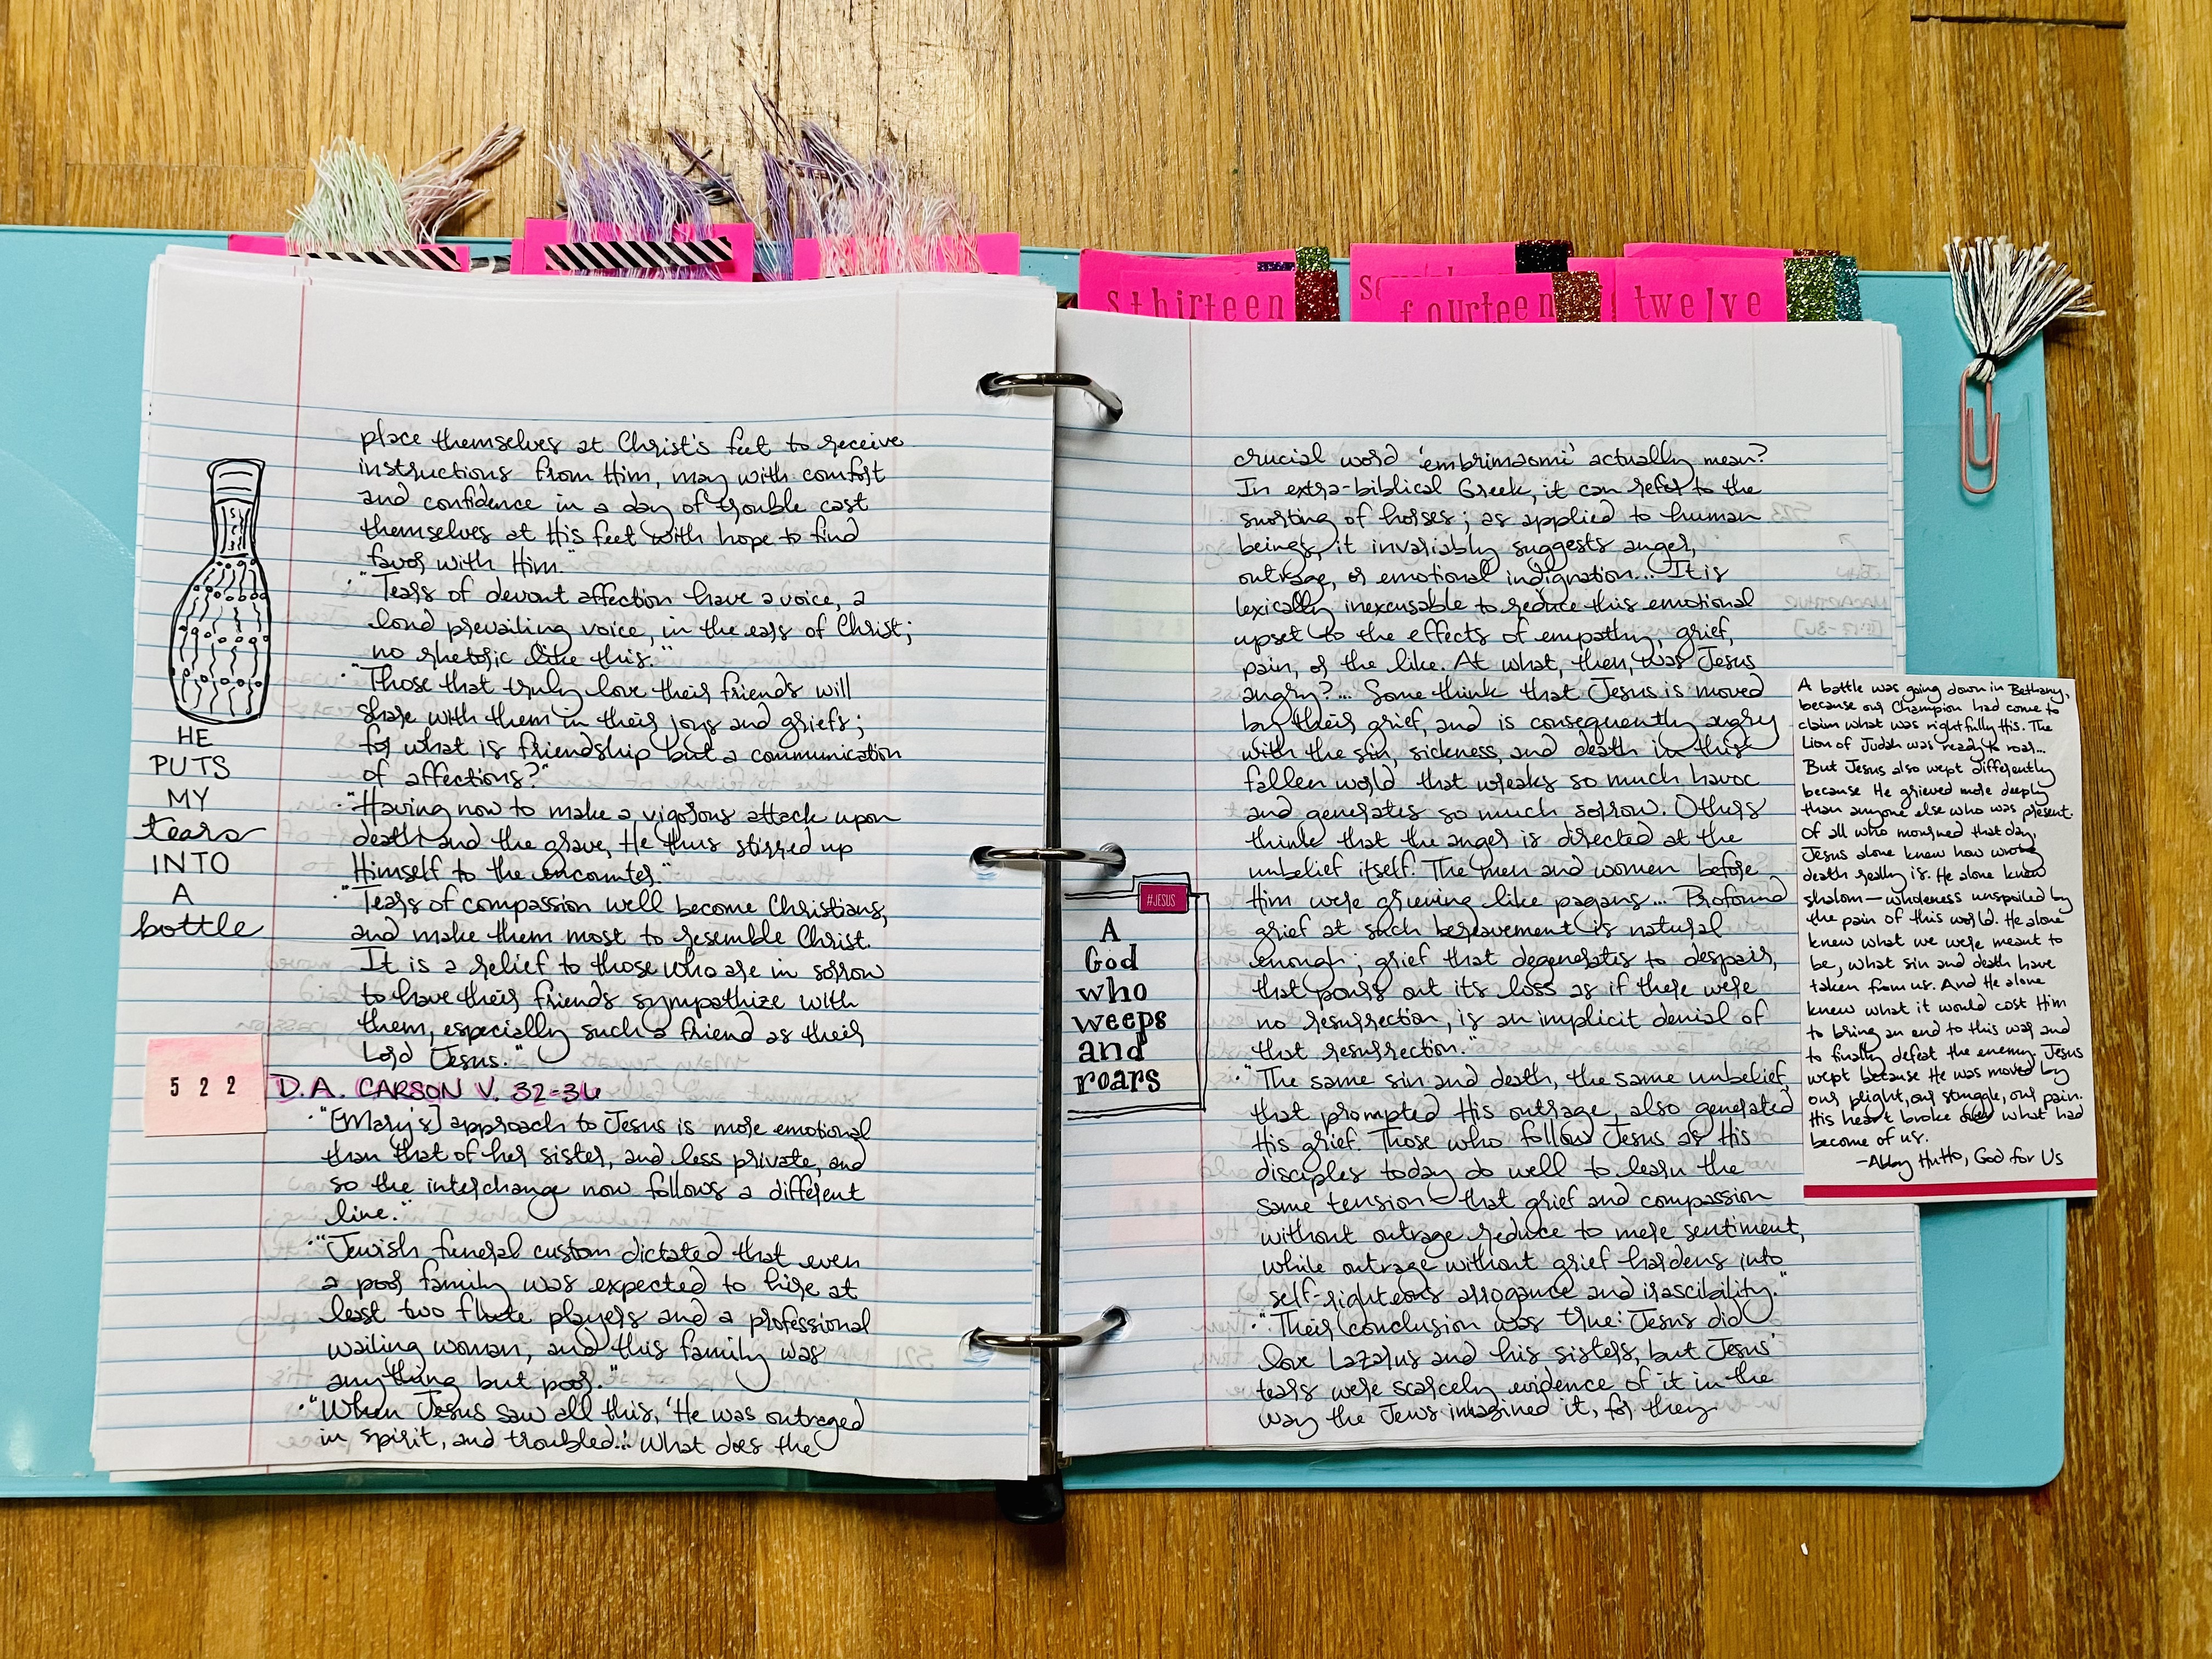 place themselves at Christ's feet to receive
instructions from Him, may with comfort
and confidence in a day of trouble cast
themselves at His feet with hope to find
favor with Him."
• "Tears of devout affection have a voice, a
loud prevailing voice, in the ears of Christ;
no rhetoric like this."
• "Those that truly love their friends will
share with them in their joys and griefs;
for what is friendship but a communication
of affections?"
• "Having now to make a vigorous attack upon
death and the grave, He thus stirred up
Himself to the encounter."
• "Tears of compassion well become Christians,
and make them most to resemble Christ.
It is a relief to those who are in sorrow
to have their friends sympathize with
them, especially such a friend as their
Lord Jesus."
HE
PUTS
MY
tears
INTO
A
bottle
522
D.A. CARSON V. 32-36
• "[Mary's] approach to Jesus is more emotional
than that of her sister, and less private, and
so the interchange now follows a different
line."
• "Jewish funeral custom dictated that even
a poor family was expected to hire at
least two flute players and a professional
wailing woman, and this family was
anything but poor."
• "When Jesus saw all this, 'He was outraged
in spirit, and troubled...' What does the
sthirteen
fourteen
twelve
crucial word 'embrimaomi' actually mean?
In extra-biblical Greek, it can refer to the
snorting of horses; as applied to human
beings, it invariably suggests anger,
outrage, or emotional indignation... It is
lexically inexcusable to reduce this emotional
upset to the effects of empathy, grief,
pain, or the like. At what, then, was Jesus
angry?... Some think that Jesus is moved
by their grief, and is consequently angry
with the sin, sickness, and death in this
fallen world that wreaks so much havoc
and generates so much sorrow. Others
think that the anger is directed at the
unbelief itself. The men and women before
Him were grieving like pagans... Profound
grief at such bereavement is natural
enough; grief that degenerates to despair,
that pours out its loss as if there were
no resurrection, is an implicit denial of
that resurrection."
• "The same sin and death, the same unbelief,
that prompted His outrage, also generated
His grief. Those who follow Jesus as His
disciples today do well to learn the
same tension – that grief and compassion
without outrage reduce to mere sentiment,
while outrage without grief hardens into
self-righteous arrogance and irascibility."
• "Their conclusion was true: Jesus did
love Lazarus and his sisters, but Jesus'
tears were scarcely evidence of it in the
way the Jews imagined it, for they
#JESUS
A
God
who
weeps
and
roars
A battle was going down in Bethany,
because our Champion had come to
claim what was rightfully His. The
Lion of Judah was ready to roar...
But Jesus also wept differently
because He grieved more deeply
than anyone else who was present.
Of all who mourned that day,
Jesus alone knew how wrong
death really is. He alone knew
shalom—wholeness unspoiled by
the pain of this world. He alone
knew what we were meant to
be, what sin and death have
taken from us. And He alone
knew what it would cost Him
to bring an end to this war and
to finally defeat the enemy. Jesus
wept because He was moved by
our plight, our struggle, our pain.
His heart broke over what had
become of us.
—Abby Hutto, God for Us